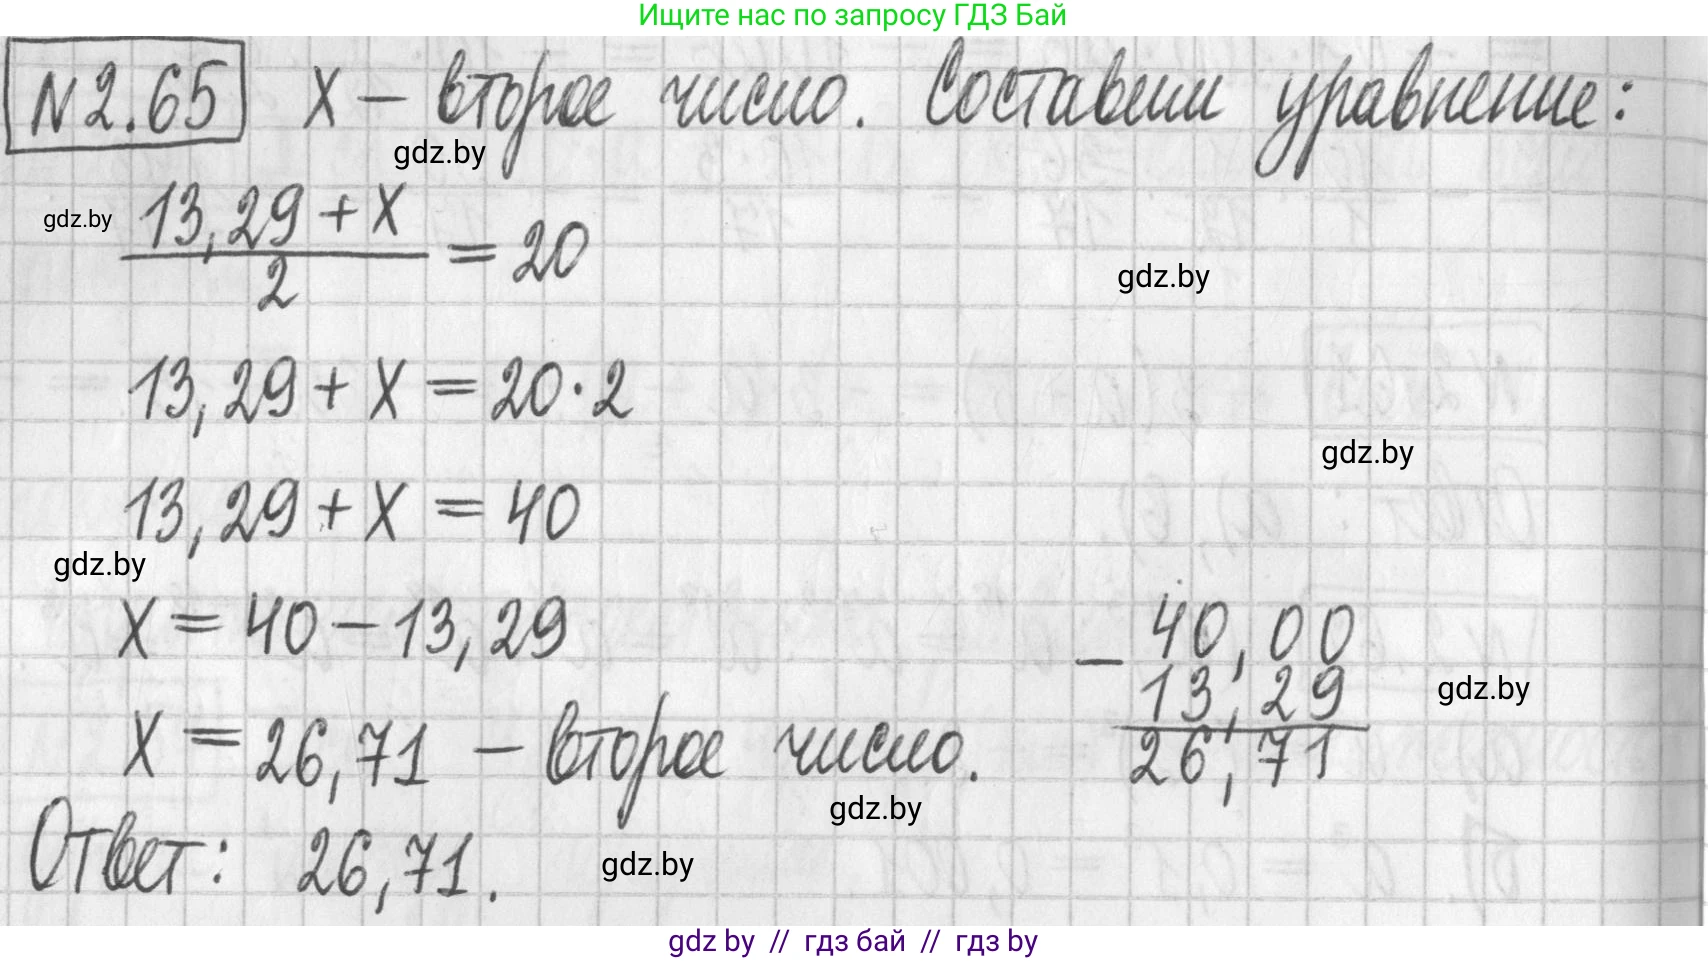 Ищите нас по запросу ГДЗ Бай
№2.65 X – второе число. Составим уравнение:
gdz.by
gdz.by
(13,29 + X)/2 = 20
gdz.by
13,29 + X = 20·2
gdz.by
13,29 + X = 40
gdz.by
X = 40 – 13,29
– 40,00
13,29
26,71
gdz.by
X = 26,71 – второе число.
gdz.by
Ответ: 26,71.
gdz.by
gdz by // гдз бай // гдз by